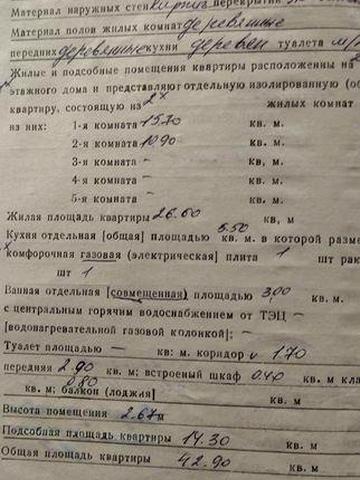 Материал наружных стен кирпич перекрытия
Материал полов жилых комнат деревянные
передних деревянные кухни деревян туалета м/п
Жилые и подсобные помещения квартиры расположены на 2
этажного дома и представляют отдельную изолированную (об
квартиру, состоящую из 2х жилых комнат
из них: 1-я комната 15.70 кв. м.
2-я комната 10.90 кв. м.
3-я комната – кв, м.
4-я комната – кв. м.
5-я комната – кв. м.
Жилая площадь квартиры 26.60 кв, м
Кухня отдельная [общая] площадью 6.50 кв. м. в которой разме
комфорочная газовая (электрическая) плита 1 шт рак
шт 1
Ванная отдельная [совмещенная) площадью 3,00 кв. м.
с центральным горячим водоснабжением от ТЭЦ –
[водонагревательной газовой колонкой]; –
Туалет площадью – кв: м. коридор 1.70
передняя 2.90 кв. м; встроенный шкаф 0.40 кв. м кла
0.80 кв. м; балкон (лоджия] кв. м
Высота помещения 2.67 м
Подсобная площадь квартиры 14.30 кв. м
Общая площадь квартиры 42.90 кв. м